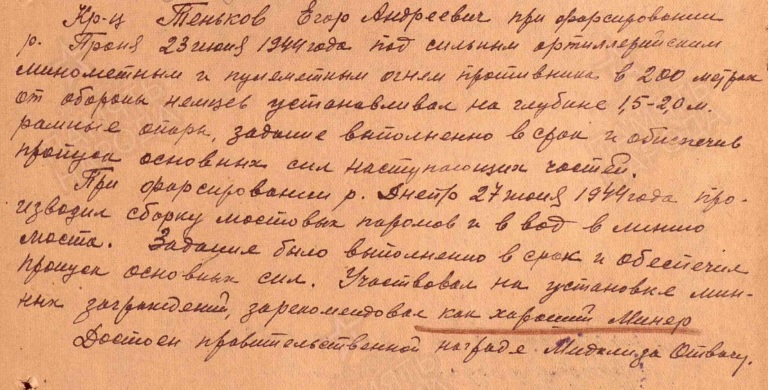 Кр-ц Теньков Егор Андреевич при форсировании
р. Проня 23 июня 1944 года под сильным артиллерийским
минометным и пулеметным огнем противника в 200 метрах
от обороны немцев устанавливал на глубине 1,5-2,0 м.
рамные опоры, задание выполненно в срок и обеспечив
пропуск основных сил наступающих частей.
При форсировании р. Днепр 27 июня 1944 года про-
изводил сборку мостовых паромов и в вод в линию
моста. Задание было выполненно в срок и обеспечил
пропуск основных сил. Участвовал на установке мин-
ных заграждений, зарекомендовал как хароший Минер
Достоен правительственной награде Мидаль за Отвагу.